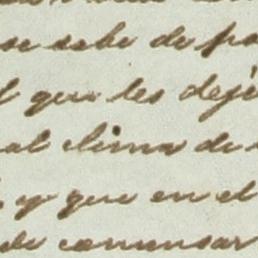 se sabe de pa
l que les dejé
al clima de
y que en el
de comensar